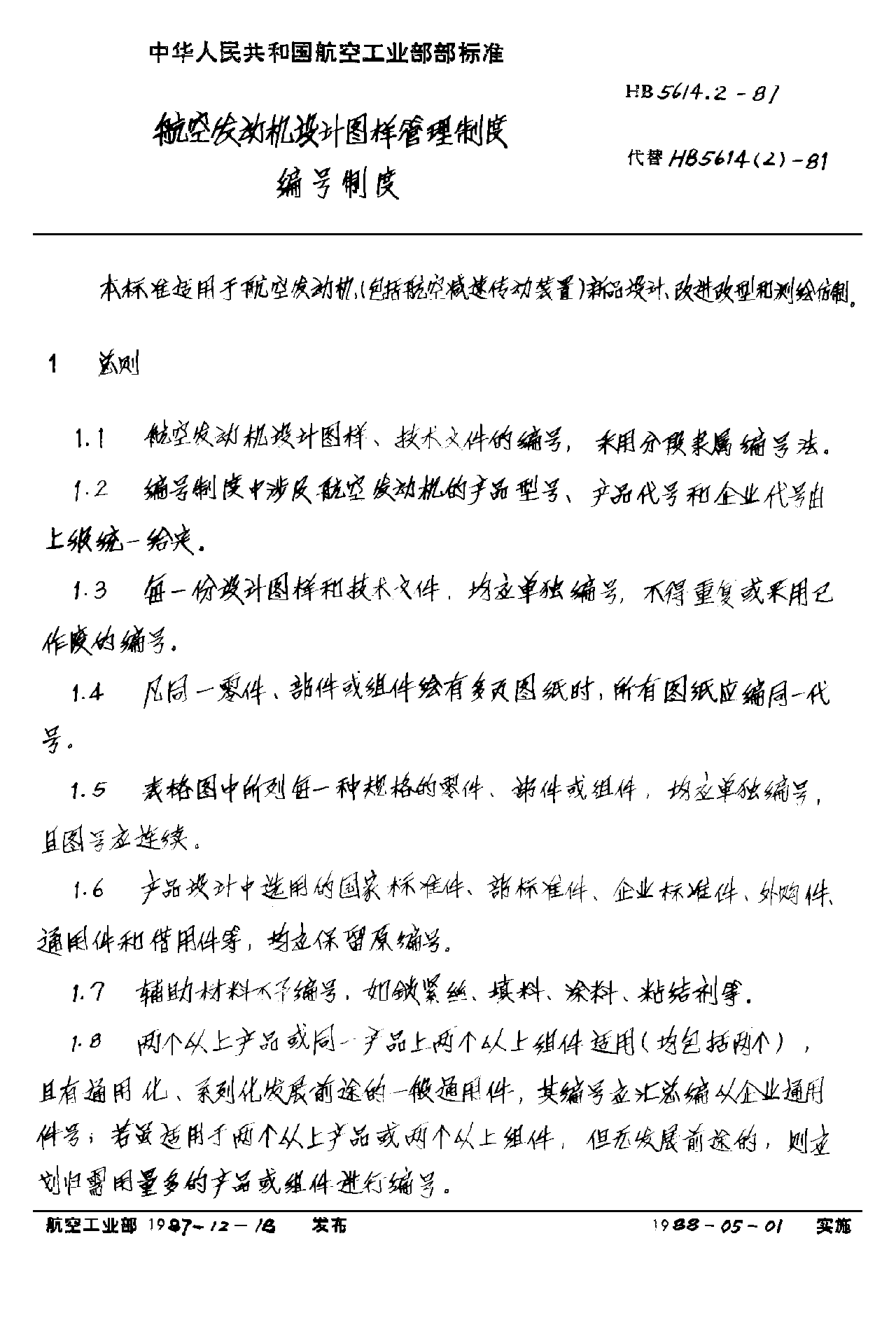 中华人民共和国航空工业部部标准
HB 5614.2-87
航空发动机设计图样管理制度
代替 HB5614(2)-81
编号制度
本标准适用于航空发动机(包括航空减速传动装置)新品设计、改进改型和测绘仿制。
1 总则
1.1 航空发动机设计图样、技术文件的编号,采用分段隶属编号法。
1.2 编号制度中涉及航空发动机的产品型号、产品代号和企业代号由
上级统一给定。
1.3 每一份设计图样和技术文件,均应单独编号,不得重复或采用已
作废的编号。
1.4 凡同一零件、部件或组件绘有多页图纸时,所有图纸应编同一代
号。
1.5 表格图中所列每一种规格的零件、部件或组件,均应单独编号,
且图号应连续。
1.6 产品设计中选用的国家标准件、部标准件、企业标准件、外购件、
通用件和借用件等,均应保留原编号。
1.7 辅助材料不予编号,如锁紧丝、填料、涂料、粘结剂等。
1.8 两个以上产品或同一产品上两个以上组件适用(均包括两个),
且有通用化、系列化发展前途的一般通用件,其编号应汇总编入企业通用
件号;若虽适用于两个以上产品或两个以上组件,但无发展前途的,则应
划归需用量多的产品或组件进行编号。
航空工业部 1987-12-16 发布
1988-05-01 实施